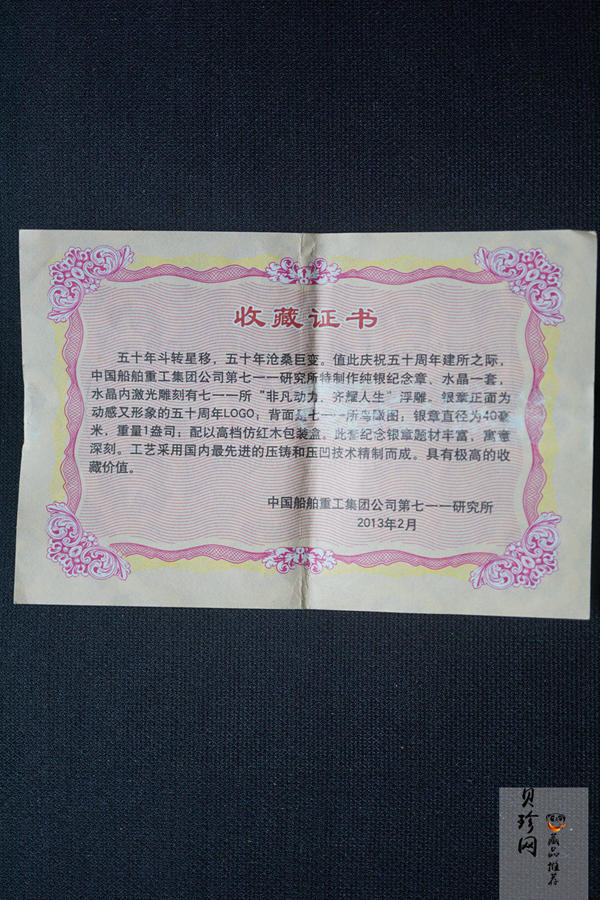 收藏证书
五十年斗转星移，五十年沧桑巨变。值此庆祝五十周年建所之际，
中国船舶重工集团公司第七一一研究所特制作纯银纪念章、水晶一套，
水晶内激光雕刻有七一一所“非凡动力，齐耀人生”浮雕。银章正面为
动感又形象的五十周年LOGO；背面是七一一所鸟瞰图，银章直径为40毫
米，重量1盎司；配以高档仿红木包装盒。此套纪念银章题材丰富，寓意
深刻。工艺采用国内最先进的压铸和压凹技术精制而成。具有极高的收
藏价值。
中国船舶重工集团公司第七一一研究所
2013年2月
贝珍网
藏品推荐